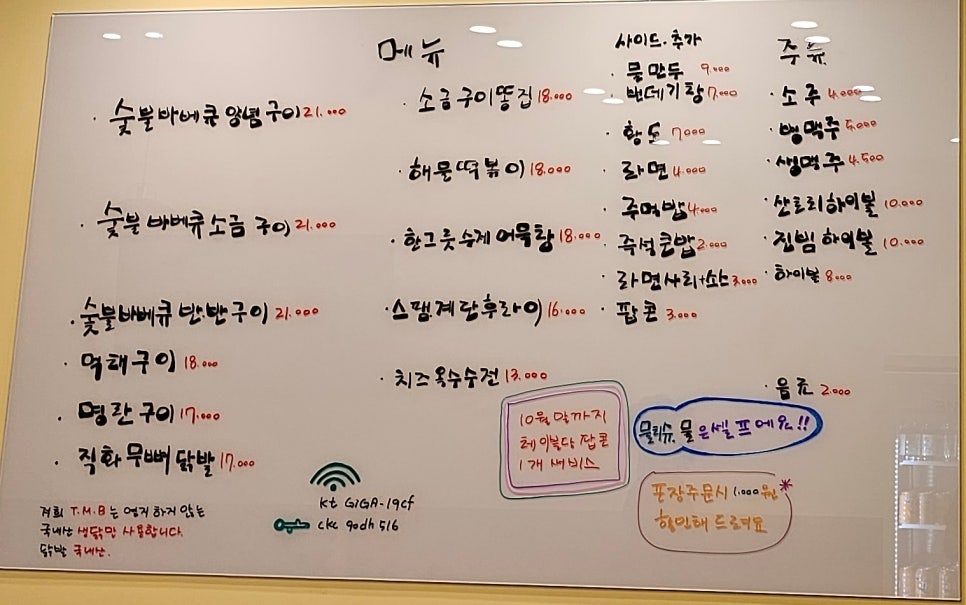 메뉴
· 숯불바베큐 양념구이 21.000
· 숯불바베큐 소금구이 21.000
· 숯불바베큐 반.반구이 21.000
· 먹태구이 18.000
· 명란구이 17.000
· 직화무뼈닭발 17.000
· 소금구이똥집 18.000
· 해물떡볶이 18.000
· 한그릇수제어묵탕 18.000
· 스팸계란후라이 16.000
· 치즈옥수수전 13.000
사이드.추가
· 물만두 9.000
· 번데기탕 7.000
· 황도 7.000
· 라면 4.000
· 주먹밥 4.000
· 즉석쿤밥 2.000
· 라면사리+소스 3.000
· 팝콘 3.000
주류
· 소주 4.000
· 병맥주 5.000
· 생맥주 4.500
· 산토리하이볼 10.000
· 진빔하이볼 10.000
· 하이볼 8.000
· 음료 2.000
10월말까지
테이블당 팝콘
1개 서비스
물티슈, 물은셀프에요!!
포장주문시 1.000원
할인해 드려요
kt GIGA-19cf
ckc90dh516
저희 T.M.B는 염지하지 않는
국내산 생닭만 사용합니다.
닭발 국내산.